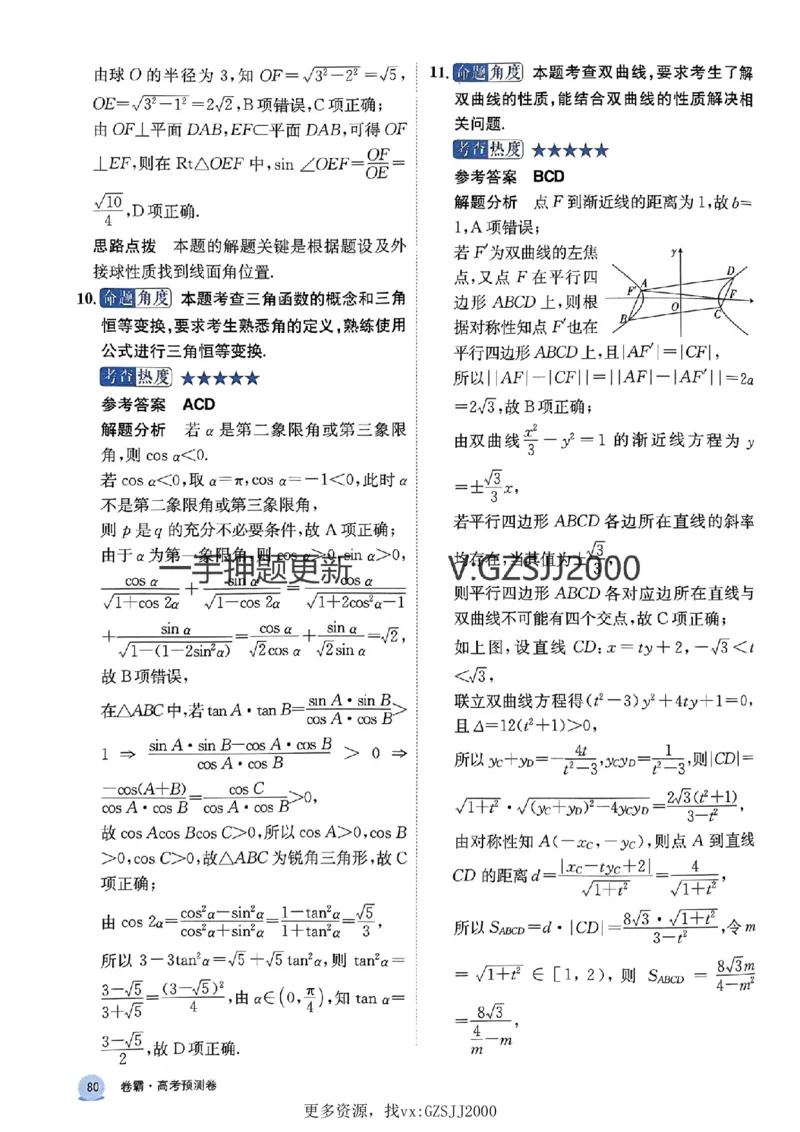 由球 O 的半径为 3,知 OF=√(3²-2²)=√5,
OE=√(3²-1²)=2√2,B项错误,C项正确;
由 OF⊥平面 DAB,EF⊂平面 DAB,可得 OF
⊥EF,则在 Rt△OEF 中,sin ∠OEF=OF/OE=
√10/4,D项正确.
思路点拨 本题的解题关键是根据题设及外
接球性质找到线面角位置.
10. 命题角度 本题考查三角函数的概念和三角
恒等变换,要求考生熟悉角的定义,熟练使用
公式进行三角恒等变换.
考查热度 ★★★★★
参考答案 ACD
解题分析 若 α 是第二象限角或第三象限
角,则 cos α<0.
若 cos α<0,取 α=π,cos α=-1<0,此时 α
不是第二象限角或第三象限角,
则 p 是 q 的充分不必要条件,故 A 项正确;
由于 α 为第一象限角,则 cos α>0,sin α>0,
cos α/√(1+cos 2α)+sin α/√(1-cos 2α)=cos α/√(1+2cos²α-1)
+sin α/√(1-(1-2sin²α))=cos α/(√2cos α)+sin α/(√2sin α)=√2,
故 B 项错误,
在△ABC中,若 tan A·tan B=(sin A·sin B)/(cos A·cos B)>
1 ⇒ (sin A·sin B-cos A·cos B)/(cos A·cos B) > 0 ⇒
-cos(A+B)/(cos A·cos B)=cos C/(cos A·cos B)>0,
故 cos Acos Bcos C>0,所以 cos A>0,cos B
>0,cos C>0,故△ABC 为锐角三角形,故 C
项正确;
由 cos 2α=(cos²α-sin²α)/(cos²α+sin²α)=(1-tan²α)/(1+tan²α)=√5/3,
所以 3-3tan²α=√5+√5tan²α,则 tan²α=
(3-√5)/(3+√5)=(3-√5)²/4,由 α∈(0,π/4),知 tan α=
(3-√5)/2,故 D 项正确.
11. 命题角度 本题考查双曲线,要求考生了解
双曲线的性质,能结合双曲线的性质解决相
关问题.
考查热度 ★★★★★
参考答案 BCD
解题分析 点 F 到渐近线的距离为 1,故 b=
1,A 项错误;
若 F′为双曲线的左焦
点,又点 F 在平行四
边形 ABCD 上,则根
据对称性知点 F′也在
y
D
F′
A
F
O
x
B
C
平行四边形 ABCD 上,且|AF′|=|CF|,
所以||AF|-|CF||=||AF|-|AF′||=2a
=2√3,故 B 项正确;
由双曲线 x²/3-y²=1 的渐近线方程为 y
=±√3/3x,
若平行四边形 ABCD 各边所在直线的斜率
均存在,当其值为±√3/3,
则平行四边形 ABCD 各对应边所在直线与
双曲线不可能有四个交点,故 C 项正确;
如上图,设直线 CD:x=ty+2,-√3<t
<√3,
联立双曲线方程得(t²-3)y²+4ty+1=0,
且 Δ=12(t²+1)>0,
所以 y_C+y_D=-4t/(t²-3),y_Cy_D=1/(t²-3),则|CD|=
√(1+t²)·√((y_C+y_D)²-4y_Cy_D)=2√3(t²+1)/(3-t²),
由对称性知 A(-x_C,-y_C),则点 A 到直线
CD 的距离 d=|x_C-ty_C+2|/√(1+t²)=4/√(1+t²),
所以 S_ABCD=d·|CD|=8√3·√(1+t²)/(3-t²),令 m
=√(1+t²)∈[1,2),则 S_ABCD=8√3m/(4-m²)
=8√3/(4/m-m),
一手押题更新
V:GZSJJ2000
80 卷霸·高考预测卷
更多资源,找vx:GZSJJ2000